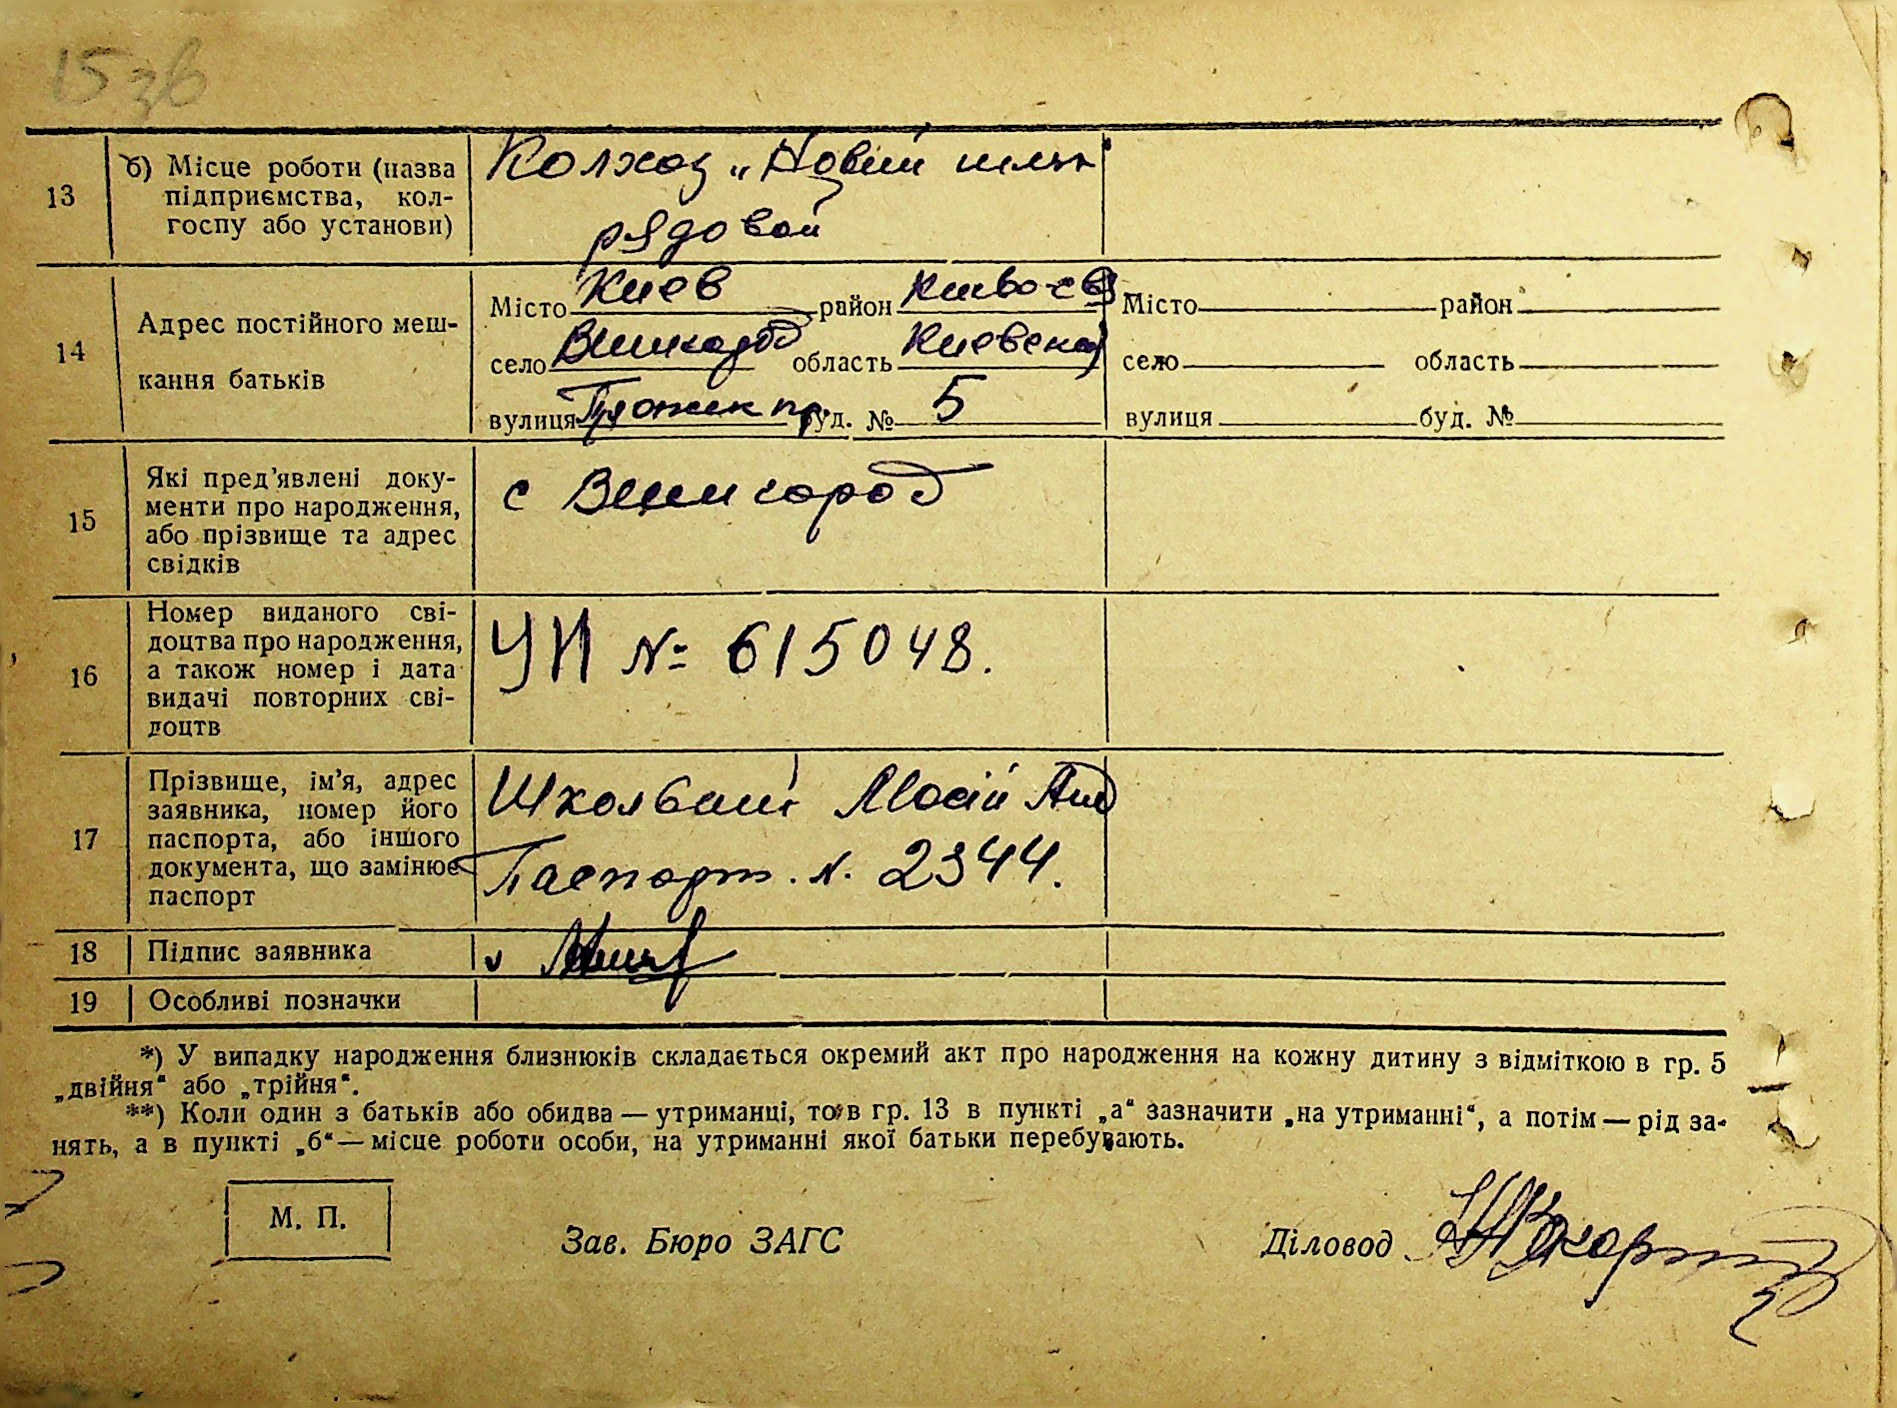 15 зв
13
б) Місце роботи (назва
підприємства, кол-
госпу або установи)
Колхоз „Новий шлях"
рядовой
14
Адрес постійного меш-
кання батьків
Місто Киев район Киево-св
село Вишгород область Киевская
вулиця буд. № 5
Місто район
село область
вулиця буд. №
15
Які пред'явлені доку-
менти про народження,
або прізвище та адрес
свідків
с Вишгород
16
Номер виданого сві-
доцтва про народження,
а також номер і дата
видачі повторних сві-
доцтв
УИ № 615048.
17
Прізвище, ім'я, адрес
заявника, номер його
паспорта, або іншого
документа, що замінює
паспорт
Мосій
Паспорт. N. 2344.
18 Підпис заявника
19 Особливі позначки
*) У випадку народження близнюків складається окремий акт про народження на кожну дитину з відміткою в гр. 5
„двійня“ або „трійня“.
**) Коли один з батьків або обидва — утриманці, то в гр. 13 в пункті „а“ зазначити „на утриманні“, а потім — рід за-
нять, а в пункті „б“ — місце роботи особи, на утриманні якої батьки перебувають.
М. П.
Зав. Бюро ЗАГС
Діловод